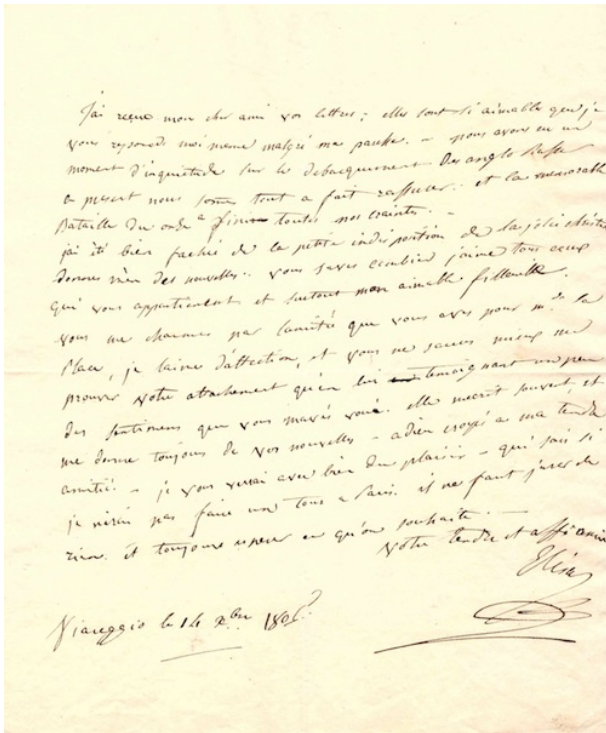 J'ai reçue mon cher ami vos lettres; elles sont si aimables que je
vous repond moi meme malgré ma paresse. – nous avons eu un
moment d'inquietude sur le debarquement Des anglo Russes
a present nous somes tout a fait rassurer. et la memorable
Bataille du 2 finira toutes nos craintes. –
jai été bien fachée de la petite indisposition de la jolie
donnes m'en des nouvelles. vous saves combien j'aime tous ceux
qui vous appartienent et surtout mon aimable filleulle.
vous me charmes par l'amitié que vous aves pour mde la
Place, je l'aime d'affection, et vous ne saures mieux me
prouver votre attachement qu'en lui temoignant un peu
des sentimens que vous m'avés voué. elle m'ecrit souvent, et
me donne toujours de vos nouvelles – adieu croyés a ma tendre
amitié – je vous verai avec bien du plaisir – qui sais si
je n'irai pas faire un tour a Paris. il ne faut jurer de
rien. et toujours esperer ce qu'on souhaite. –
votre tendre et aff
Elisa
Viareggio le 14 xbre 1805